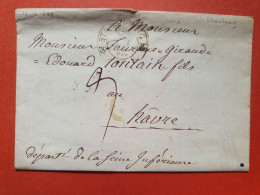 A Monsieur
Monsieur Laurent Giraud
= Edouard Fontain fils
au
hâvre
départ. de la Seine Inférieure